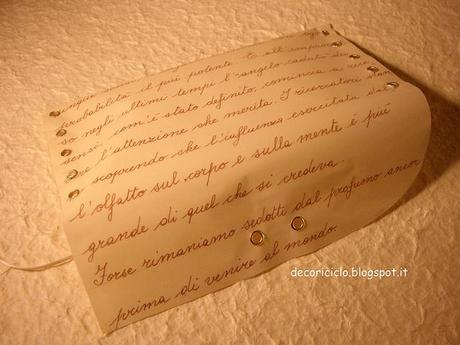 cinque
probabilità il più potente. E all'improv
so negli ultimi tempi l'angelo caduto dei
sensi, com'è stato definito, comincia a rice
ve l'attenzione che merita. I ricercatori stan
scoprendo che l'influenza esercitata dal
l'olfatto sul corpo e sulla mente è più
grande di quel che si credeva.
Forse rimaniamo sedotti dal profumo ancor
prima di venire al mondo.
decoriciclo.blogspot.it